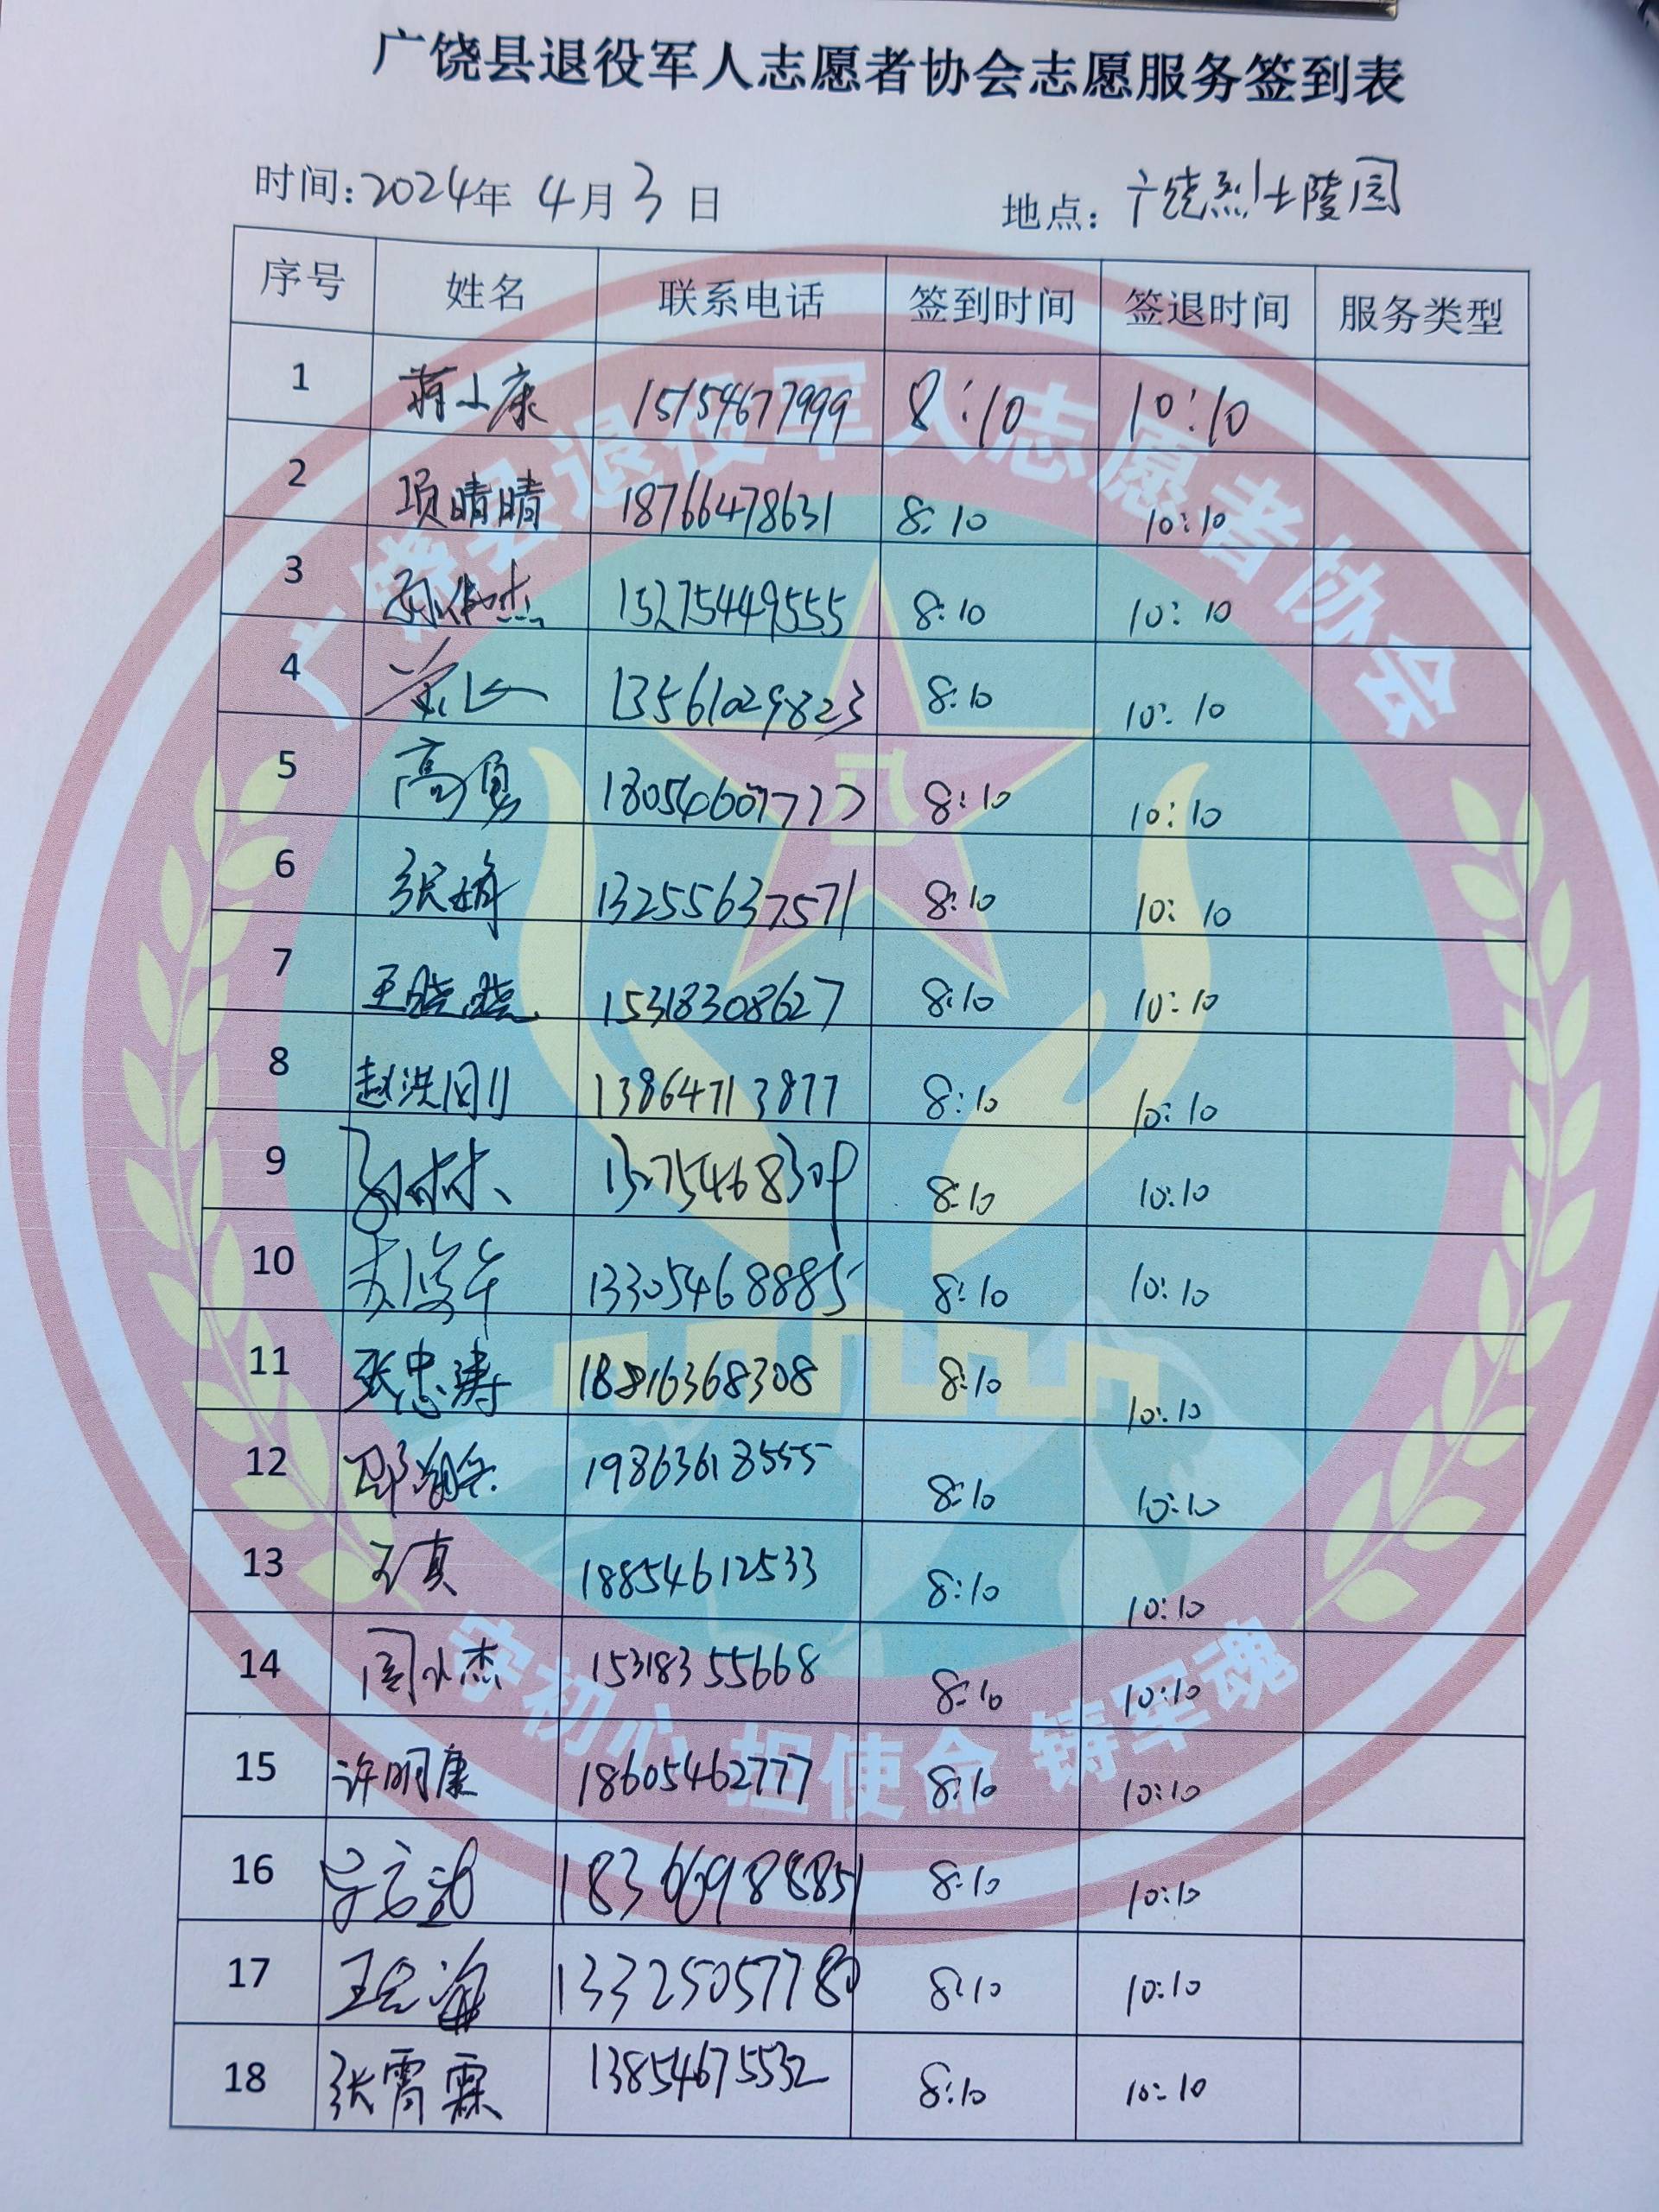 广饶县退役军人志愿者协会志愿服务签到表
时间:2024年 4月 3 日 地点: 广饶烈士陵园
序号 姓名 联系电话 签到时间 签退时间 服务类型
1 蒋小康 15154677999 8:10 10:10
2 项晴晴 18766478631 8:10 10:10
3 孙伟杰 15275449555 8:10 10:10
4 13561029823 8:10 10:10
5 高勇 18054607777 8:10 10:10
6 张婷 13255637571 8:10 10:10
7 王晓晓 15318308627 8:10 10:10
8 赵洪刚 13864713877 8:10 10:10
9 8:10 10:10
10 13305468885 8:10 10:10
11 张忠涛 18816368308 8:10 10:10
12 19863618555 8:10 10:10
13 王真 18854612533 8:10 10:10
14 周小杰 15318355668 8:10 10:10
15 许明康 18605462777 8:10 10:10
16 8:10 10:10
17 13325057780 8:10 10:10
18 张霄霖 13854675532 8:10 10:10
广饶县退役军人志愿者协会
八一
守初心 担使命 铸军魂